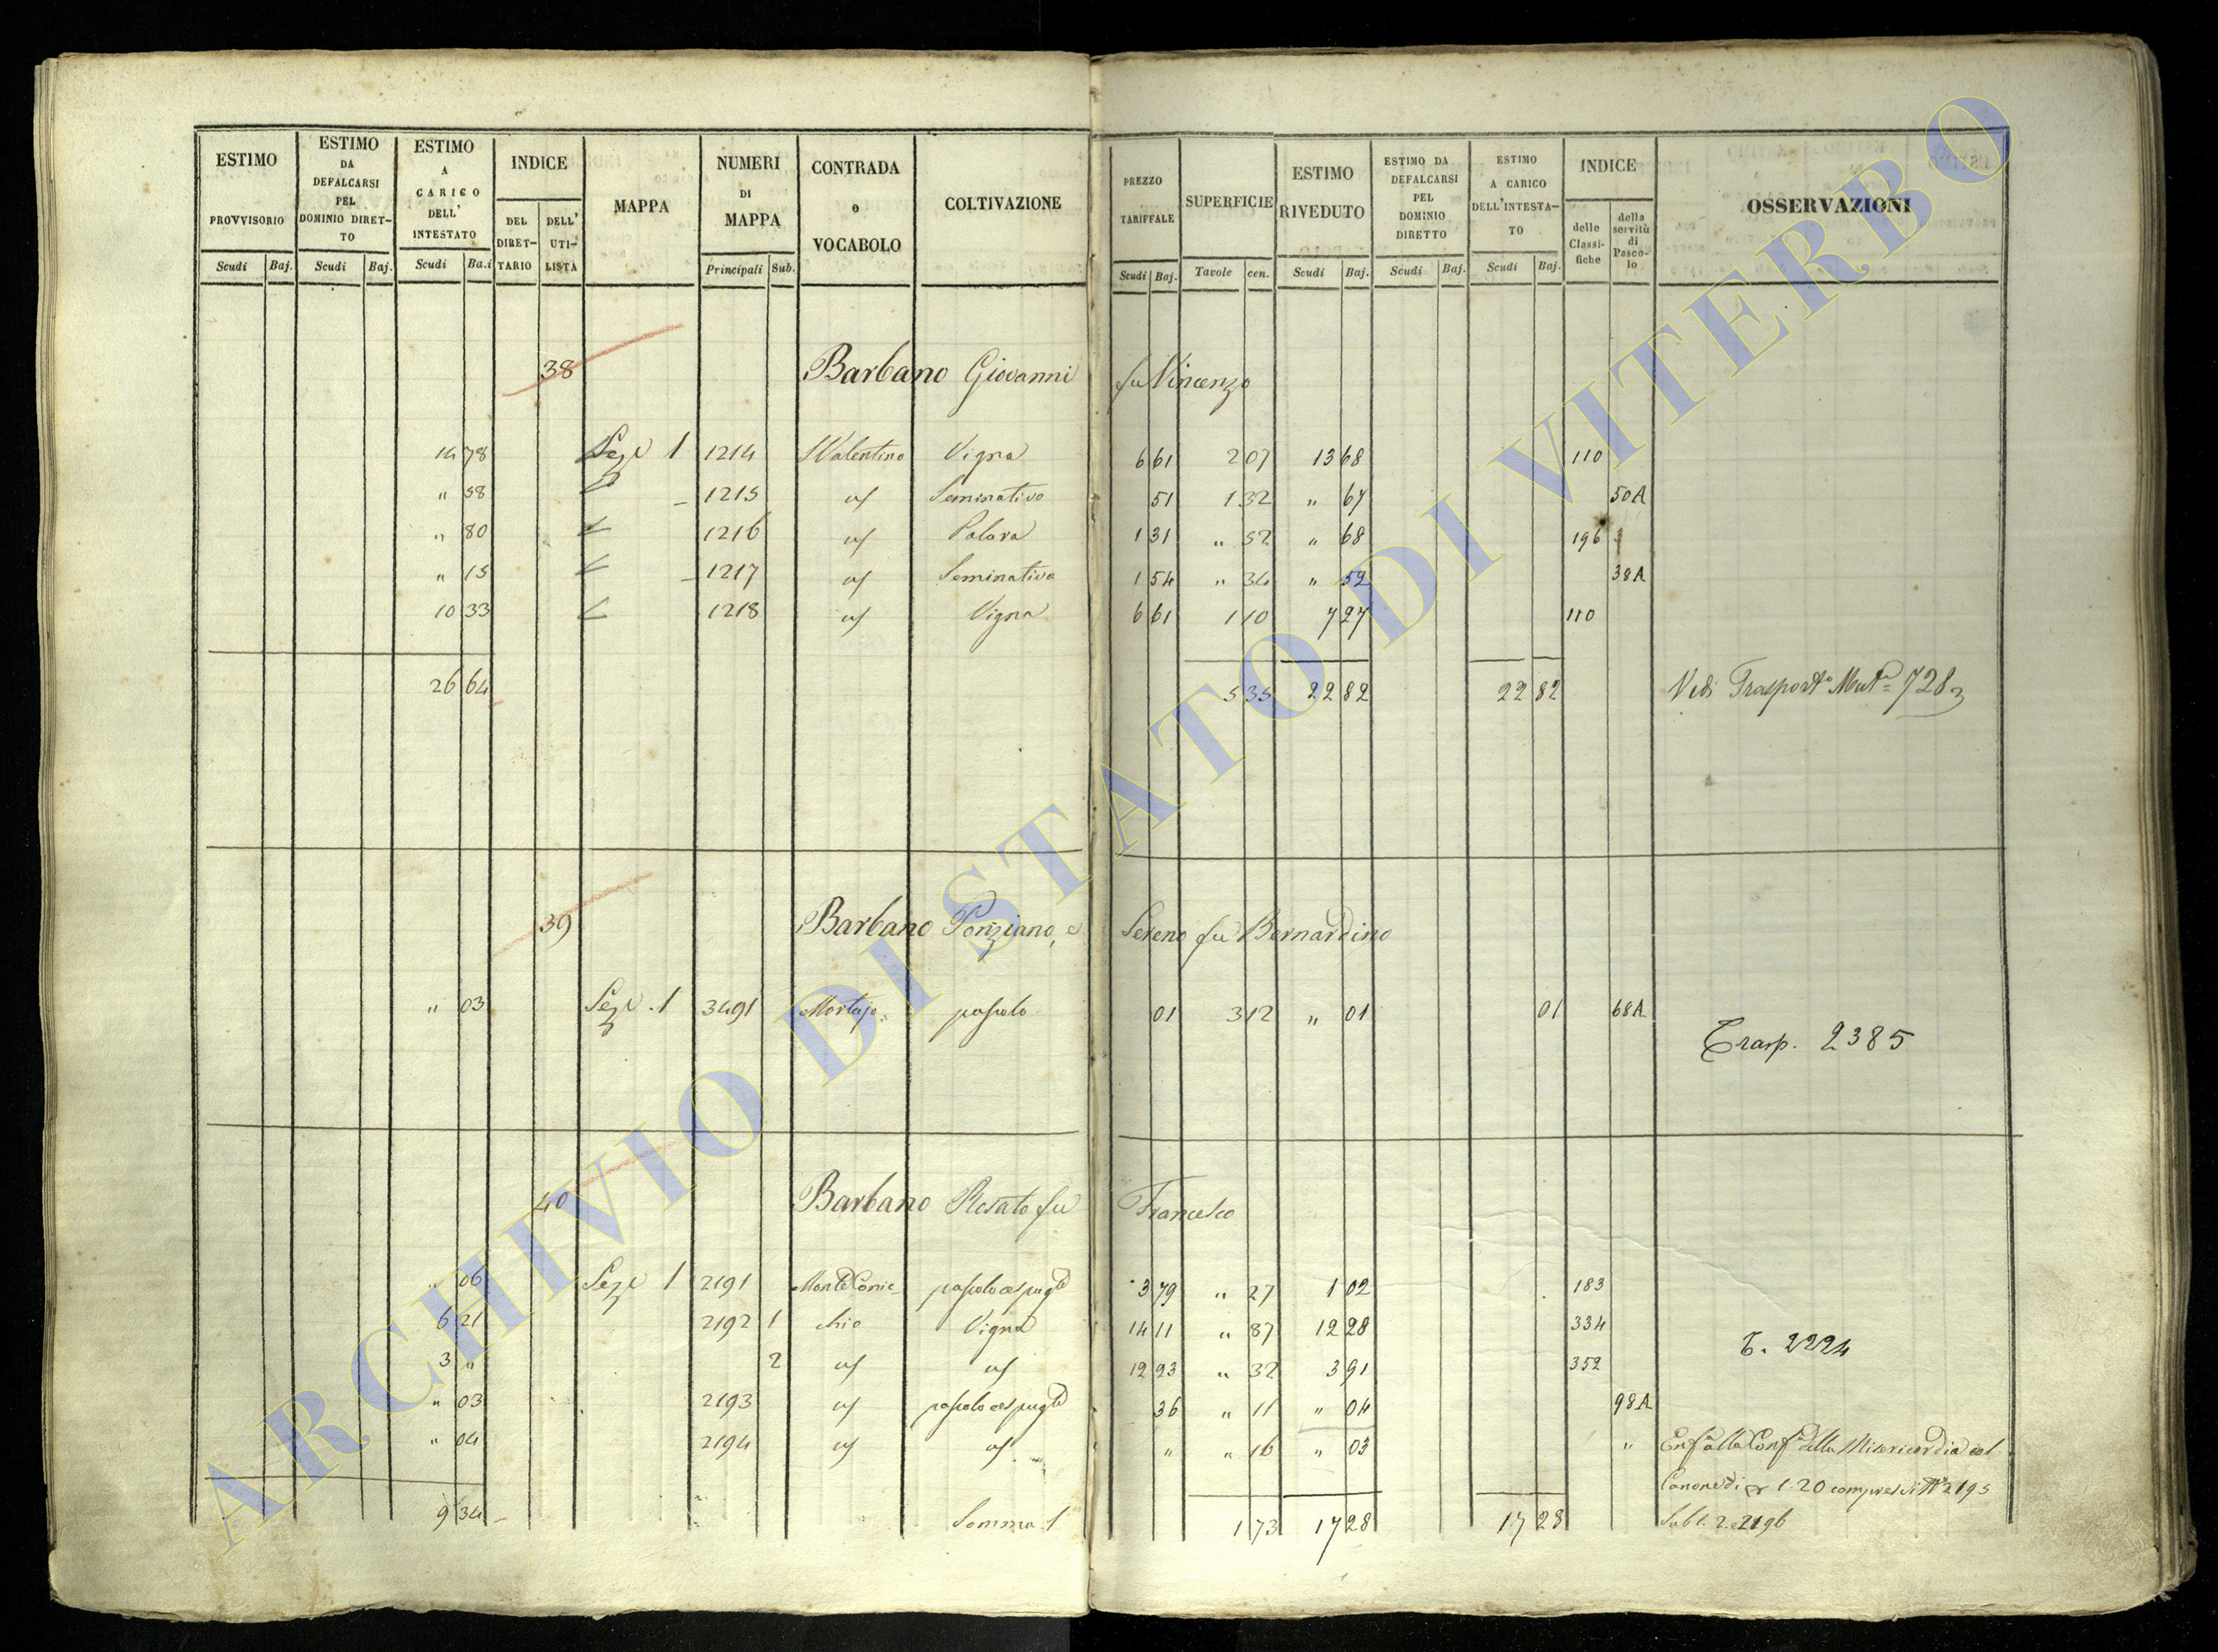 ESTIMO PROVVISORIO
ESTIMO DA DEFALCARSI PEL DOMINIO DIRET-TO
ESTIMO A CARICO DELL' INTESTATO
INDICE
DEL DIRET-TARIO
DELL' UTI-LISTA
MAPPA
NUMERI DI MAPPA
CONTRADA o VOCABOLO
COLTIVAZIONE
PREZZO TARIFFALE
SUPERFICIE
ESTIMO RIVEDUTO
ESTIMO DA DEFALCARSI PEL DOMINIO DIRETTO
ESTIMO A CARICO DELL'INTESTA-TO
INDICE
delle Classi-fiche
della servitù di Pasco-lo
OSSERVAZIONI
Scudi Baj. Scudi Baj. Scudi Ba.i Principali Sub. Scudi Baj. Tavole cen. Scudi Baj. Scudi Baj. Scudi Baj.
38 Barbano Giovanni fu Vincenzo
14 78 Seze 1 1214 SValentino Vigna 6 61 2 07 13 68 110
" 58 1215 Seminativo 51 1 32 " 67 50A
" 80 1216 1 31 " 52 " 68 196
" 15 1217 Seminativo 1 54 " 34 " 52 38A
10 33 1218 Vigna 6 61 1 10 7 27 110
26 64 5 35 22 82 22 82 Vedi Trasporto Mut.a 728
39 Barbano Ponziano, e Sereno fu Bernardino
" 03 Seze 1 3491 pascolo 01 3 12 " 01 01 68A
Trasp. 2385
40 Barbano Rosato fu Francesco
" 06 Seze 1 2191 Monte Cornic 3 79 " 27 1 02 183
6 21 2192 1 chio Vigna 14 11 " 87 12 28 334
T. 2224
3 " 2 12 23 " 32 3 91 352
" 03 2193 36 " 11 " 04 98A
" 04 2194 " " 16 " 03 " Enf. alla Conf.a della Misericordia col
Canone di 1.20 compresi i N.i 2195
9 34 Somma 1 1 73 17 28 17 28 Sub 1. 2. 2196
ARCHIVIO DI STATO DI VITERBO